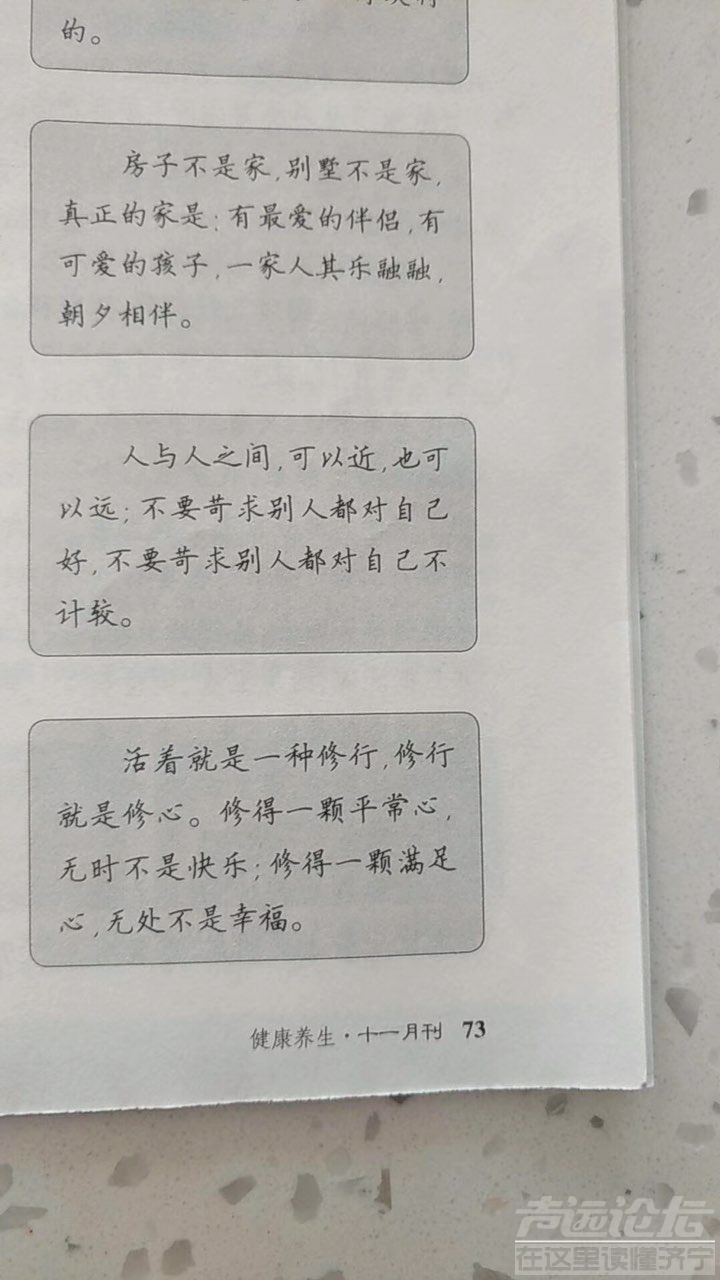 的。
房子不是家,别墅不是家,
真正的家是:有最爱的伴侣,有
可爱的孩子,一家人其乐融融,
朝夕相伴。
人与人之间,可以近,也可
以远;不要苛求别人都对自己
好,不要苛求别人都对自己不
计较。
活着就是一种修行,修行
就是修心。修得一颗平常心,
无时不是快乐;修得一颗满足
心,无处不是幸福。
健康养生·十一月刊 73
声远论坛
在这里读懂济宁